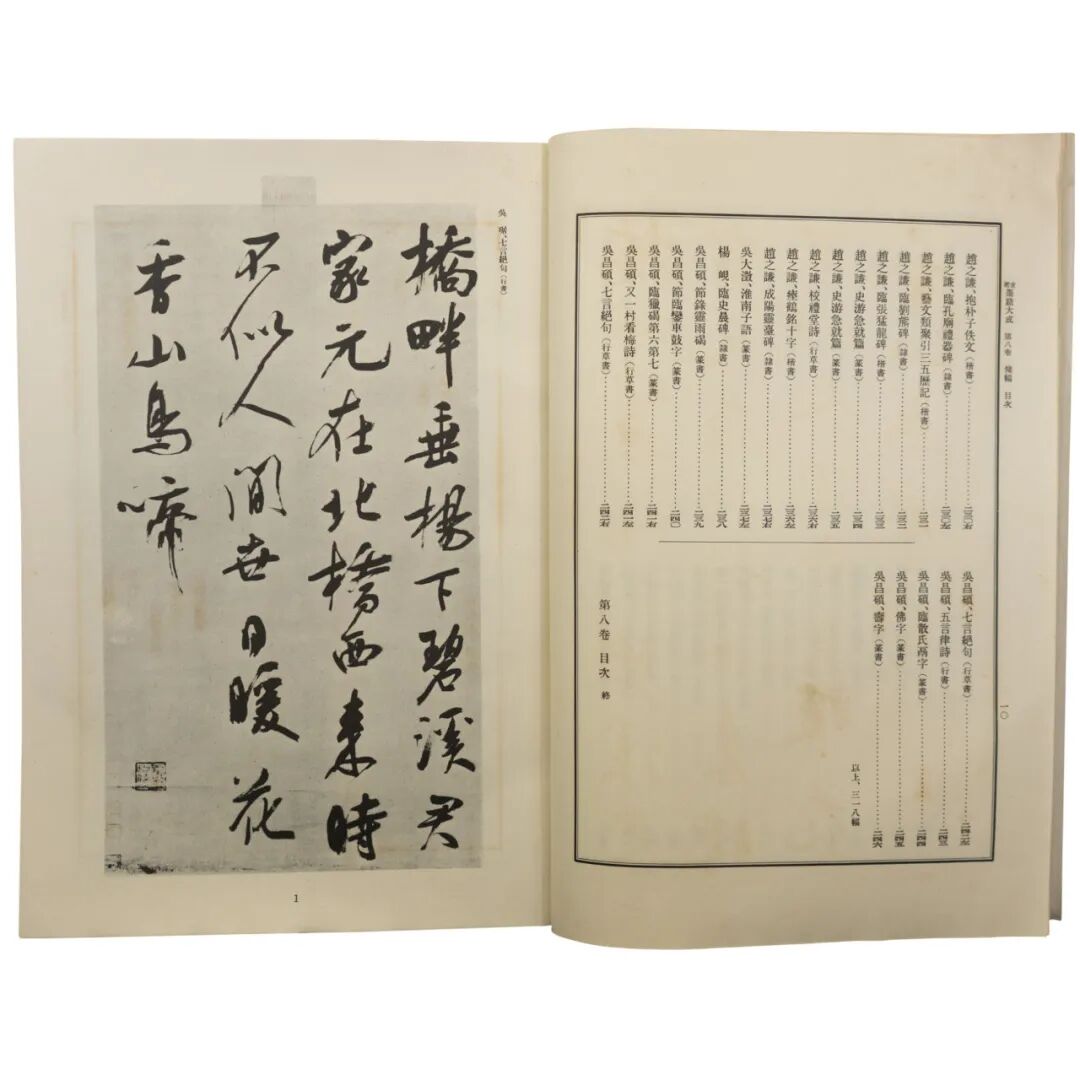 墨蹟大成 第八卷 條幅 目次
趙之謙、抱朴子佚文(楷書)………二三〇右
趙之謙、臨孔廟禮器碑(隸書)………二三〇左
趙之謙、藝文類聚引三五歷記(楷書)………二三一
趙之謙、臨劉熊碑(隸書)………二三二
趙之謙、臨張猛龍碑(楷書)………二三三
趙之謙、史游急就篇(篆書)………二三四
趙之謙、史游急就篇(篆書)………二三五
趙之謙、校禮堂詩(行草書)………二三六右
趙之謙、瘞鶴銘十字(楷書)………二三六左
趙之謙、成陽靈臺碑(隸書)………二三七右
吳大澂、淮南子語(篆書)………二三七左
楊 峴、臨史晨碑(隸書)………二三八
吳昌碩、節錄靈雨碣(篆書)………二三九
吳昌碩、節臨鑾車鼓字(篆書)………二四〇
吳昌碩、臨獵碣第六第七(篆書)………二四一右
吳昌碩、又一村看梅詩(行草書)………二四一左
吳昌碩、七言絶句(行草書)………二四二右
吳昌碩、七言絶句(行草書)………二四二左
吳昌碩、五言律詩(行書)………二四三
吳昌碩、臨散氏鬲字(篆書)………二四四
吳昌碩、佛字(篆書)………二四五
吳昌碩、壽字(篆書)………二四六
以上、三一八幅
第八卷 目次 終
一〇
吳 琚、七言絶句(行書)
橋畔垂楊下碧溪君
家元在北橋西來時
不似人間世日暖花
香山鳥啼
1